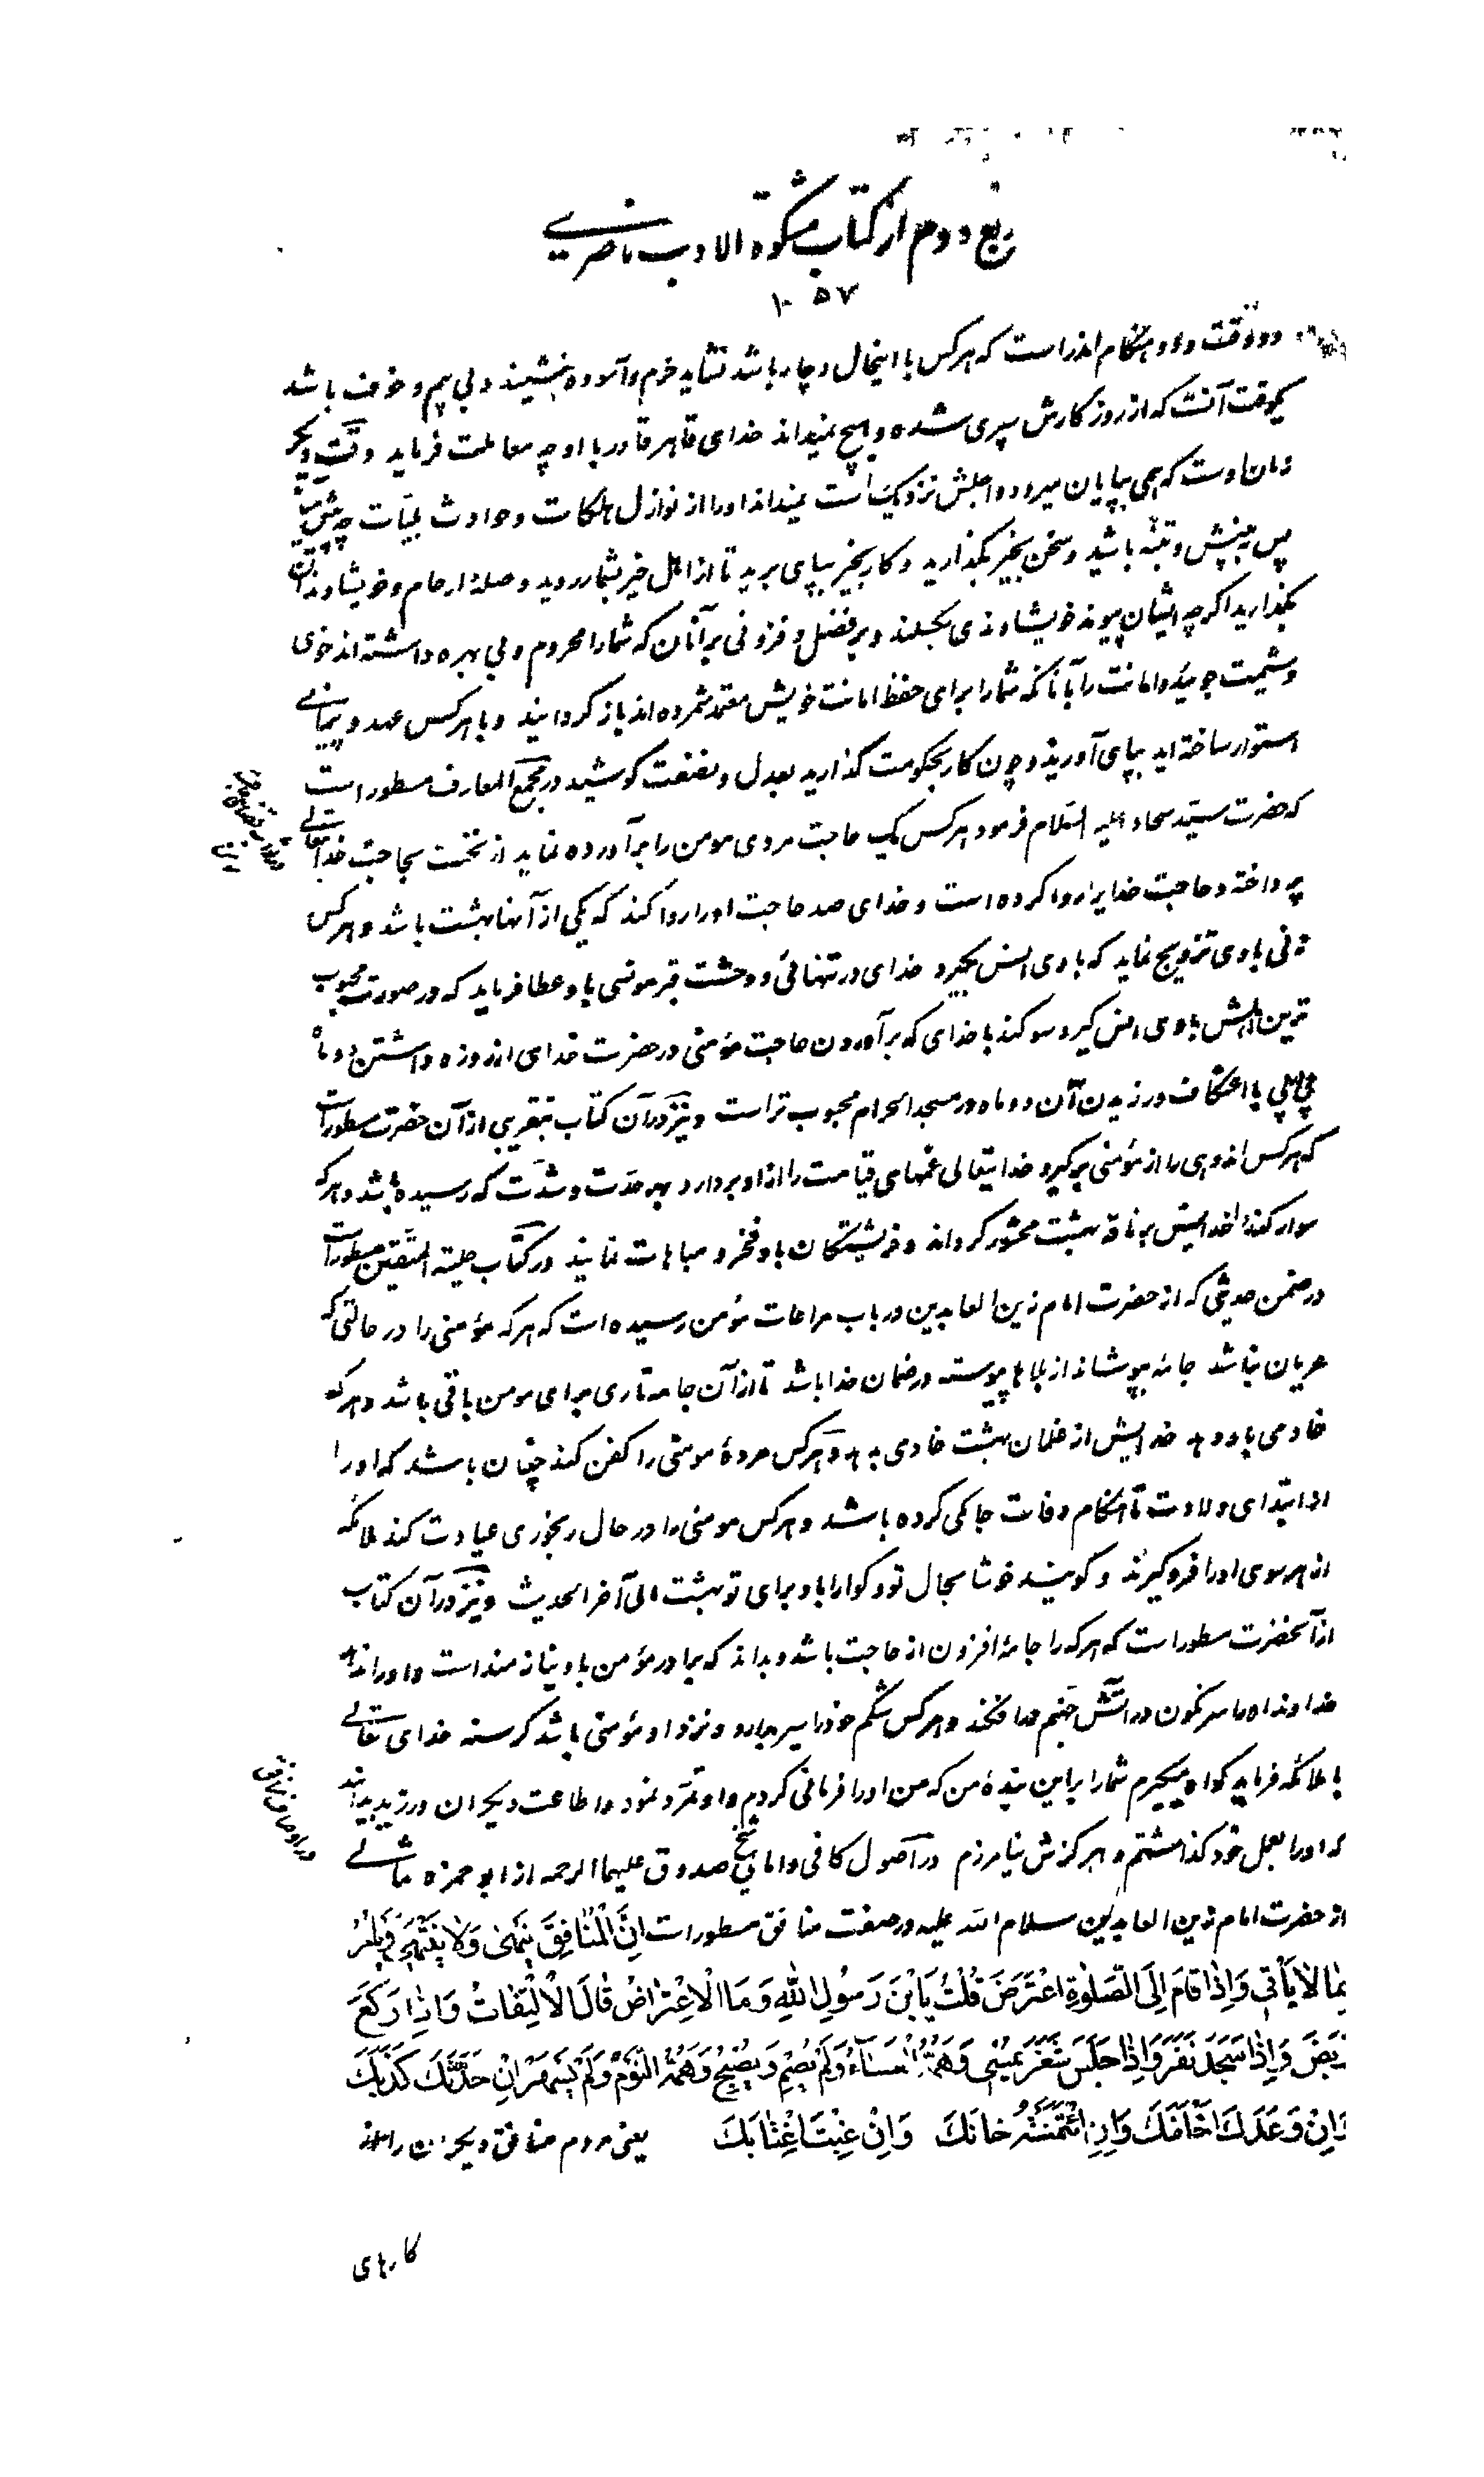 ربع دوم از کتاب مشکوة الادب ناصری
۱۰۵۷
دو وقت و دو هنگام اندر است که هر کس با اینحال دچار باشد نشاید خرم و آسوده بنشیند و بی بیم و خوف باشد
یکوقت آنست که از روز کارش سپری شده و هیچ نمیداند خدای قاهر قادر با او چه معاملت فرماید و وقت دیگر
زمان اوست که همی بپایان میرود و اجلش نزدیک است نمیداند او را از نوازل هلکات و حوادث بلیّات چه پیش
پس به بینش و تنبّه باشید و سخن بخیر بگذارید و کار بخیر بپای برید تا از اهل خیر بشمار روید و صلهٔ ارحام و خویشاوندان
بگذارید اگر چه ایشان پیوند خویشاوندی بگسلند و بر فضل و فزونی بر آنان که شما را محروم و بی بهره داشته اند خوی
و شیمت جوئید و امانت را بآنانکه شما را برای حفظ امانت خویش معتمد شمرده اند باز گردانید و با هر کس عهد و پیمانی
استوار ساخته اید بپای آورید و چون کار بحکومت گذارید بعدل و نصفت کوشید در مجمع المعارف مسطور است
که حضرت سید سجاد علیه السلام فرمود هر کس یک حاجت مردی مومن را برآورده نماید از نخست بحاجت خدایتعالی
پرداخته و حاجت خدایرا روا کرده است و خدای صد حاجت او را روا کند که یکی از آنها بهشت باشد و هر کس
زنی باوی تزویج نماید که باوی انس بگیرد خدای در تنهائی و وحشت قبر مونسی باو عطا فرماید که در صورت محبوب
ترین اهلش باوی انس گیرد سوگند با خدای که برآوردن حاجت مؤمنی در حضرت خدای از روزه داشتن دو ماه
پی در پی با اعتکاف ورزیدن آن دو ماه در مسجد الحرام محبوب تر است و نیز در آن کتاب بتقریبی از آن حضرت مسطور است
که هر کس اندوهی را از مؤمنی برگیرد خدایتعالی غمهای قیامت را از او بردارد بهر حدّت و شدّت که رسیده باشد و هر که
سوار کند خدایش بر ناقه بهشت محشور گرداند و فرشتگان باو فخر و مباهات نمایند در کتاب حلیة المتقین مسطور است
در ضمن حدیثی که از حضرت امام زین العابدین در باب مراعات مؤمن رسیده است که هر که مؤمنی را در حالتی که
عریان نباشد جامهٔ بپوشاند از بلاها پیوسته در ضمان خدا باشد تا از آن جامه تاری برای مومن باقی باشد و هر که
خادمی باو دهد خدایش از غلمان بهشت خادمی بدهد و هر کس مردهٔ مومنی را کفن کند چنان باشد که او را
از ابتدای ولادت تا هنگام وفات جامگی کرده باشد و هر کس مومنی را در حال رنجوری عیادت کند ملائکه
از هر سوی او را فرو گیرند و گویند خوشا بحال تو و گوارا باد برای تو بهشت الی آخر الحدیث و نیز در آن کتاب
از آنحضرت مسطور است که هر که را جامهٔ افزون از حاجت باشد و بداند که برادر مؤمن باو نیازمند است و او را ندهد
خداوند او را سرنگون در آتش جهنم در افکند و هر کس شکم خود را سیر بدارد و نزد او مؤمنی باشد گرسنه خدای تعالی
با ملائکه فرماید گواه میگیرم شما را بر این بندهٔ من که من او را فرمانی کردم و او تمرّد نمود و اطاعت دیگران ورزید بدانید
که او را بعمل خود گذاشتم و هرگزش نیامرزم در اصول کافی و امالی شیخ صدوق علیهما الرحمه از ابو حمزه ثمالی
از حضرت امام زین العابدین سلام الله علیه در صفت منافق مسطور است اِنَّ الْمُنَافِقَ يَنْهَىٰ وَلَا يَنْتَهِي وَيَأْمُرُ
بِمَا لَا يَأْتِي وَإِذَا قَامَ إِلَى الصَّلٰوةِ اعْتَرَضَ قُلْتُ يَا بْنَ رَسُولِ اللهِ وَمَا الْاِعْتِرَاضُ قَالَ الْاِلْتِفَاتُ وَاِذَا رَكَعَ
رَبَضَ وَإِذَا سَجَدَ نَقَرَ وَإِذَا جَلَسَ شَغَرَ يُمْسِي وَهَمُّهُ الْعَشَاءُ وَلَمْ يَصُمْ وَيُصْبِحُ وَهَمُّهُ النَّوْمُ وَلَمْ يَسْهَرْ اِنْ حَدَّثَكَ كَذَبَكَ
وَاِنْ وَعَدَكَ اَخْلَفَكَ وَاِنِ ائْتَمَنْتَهُ خَانَكَ وَاِنْ غِبْتَ اغْتَابَكَ یعنی مردم منافق دیگران را از
کارهای